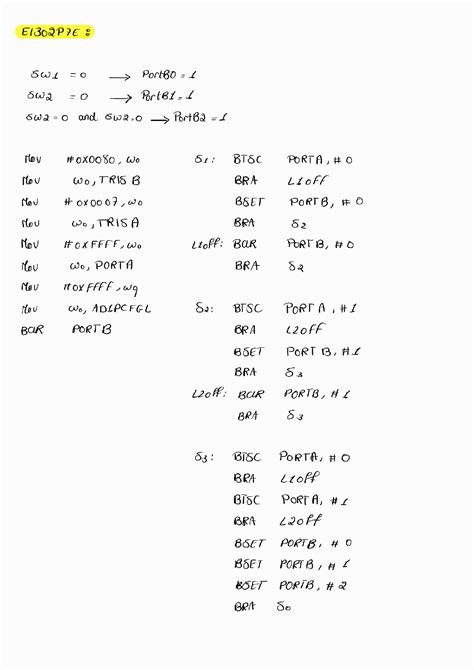 E1302P7E:
SW1 = 0 → PortB0 = 1
SW2 = 0 → PortB1 = 1
SW2=0 and SW2=0 → PortB2 = 1
Mov #0x0080, W0
Mov W0, TRISB
Mov #0x0007, W0
Mov W0, TRISA
Mov #0xFFFF, W0
Mov W0, PORTA
Mov #0xFFFF, W9
Mov W0, AD1PCFGL
BCLR PORTB
S1: BTSC PORTA, #0
BRA L1OFF
BSET PORTB, #0
BRA S2
L1OFF: BCLR PORTB, #0
BRA S2
S2: BTSC PORTA, #1
BRA L2OFF
BSET PORTB, #1
BRA S3
L2OFF: BCLR PORTB, #1
BRA S3
S3: BTSC PORTA, #0
BRA L1OFF
BTSC PORTA, #1
BRA L2OFF
BSET PORTB, #0
BSET PORTB, #1
BSET PORTB, #2
BRA S0